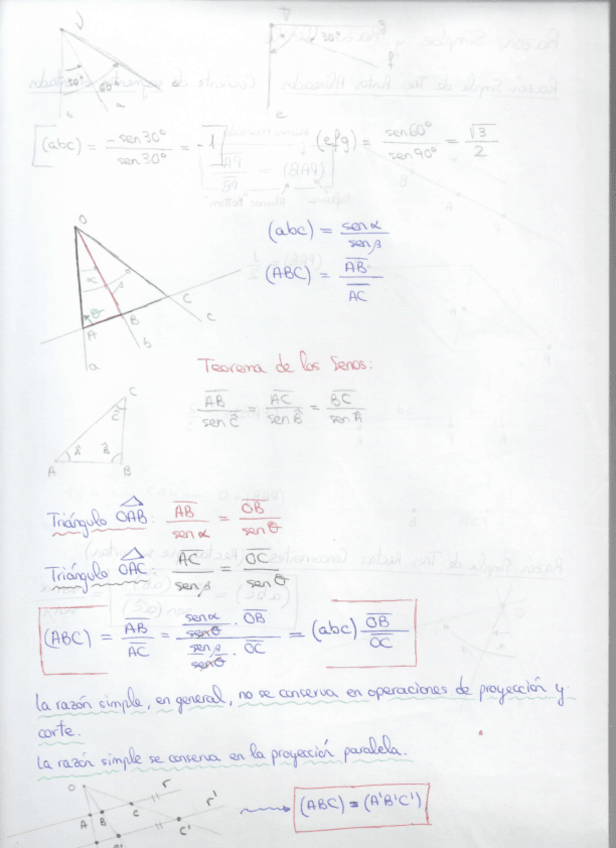 30° 60° a
30° g f e
(abc) = -sen30° / sen30° = -1 (efg) = sen60° / sen90° = √3 / 2
O
(abc) = senα / senβ
α β
(ABC) = AB / AC
θ A B C c
a b
Teorema de los Senos:
AB / senĈ = AC / senB̂ = BC / senÂ
C Ĉ
A Â B̂ B
Triángulo OAB: AB / senα = OB / senθ
Triángulo OAC: AC / senβ = OC / senθ
(ABC) = AB / AC = (senα / senθ · OB) / (senβ / senθ · OC) = (abc) OB / OC
La razón simple, en general, no se conserva en operaciones de proyección y
corte.
La razón simple se conserva en la proyección paralela.
O r r'
A B C C'
(ABC) = (A'B'C')